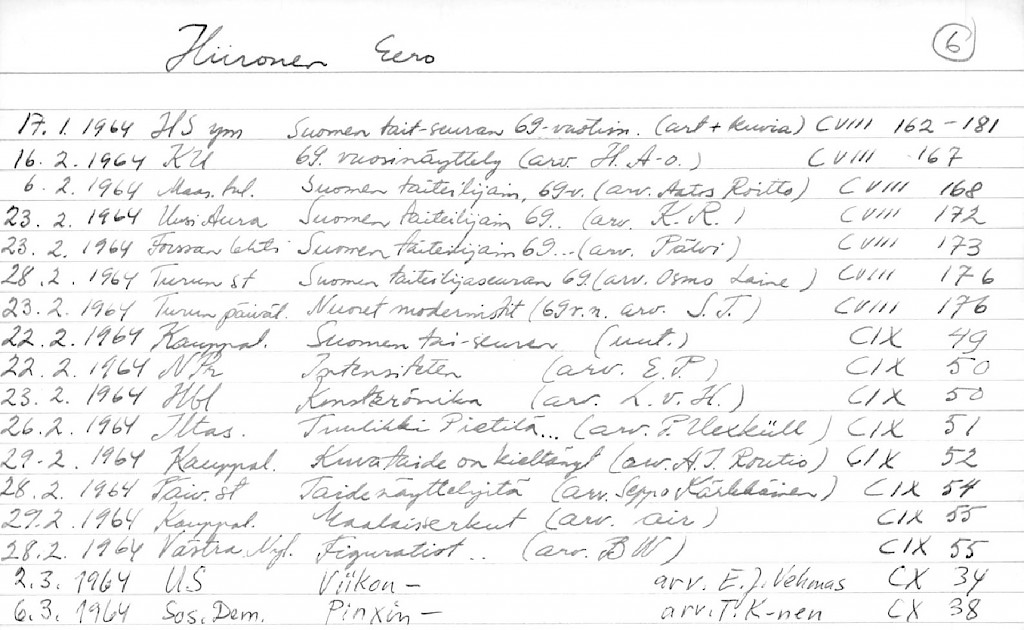 Hiironen Eero 6
17. 1. 1964 HS ym Suomen tait-seuran 69-vuotisn. (art + kuvia) CVIII 162-181
16. 2. 1964 KU 69. vuosinäyttely (arv. H. A-o.) CVIII 167
6. 2. 1964 Maas. tul. Suomen taiteilijain, 69-v. (arv. Aatos Roitto) CVIII 168
23. 2. 1964 Uusi Aura Suomen taiteilijain 69.. (arv. K. R.) CVIII 172
23. 2. 1964 Forssan lehti Suomen taiteilijain 69... (arv. Päivi) CVIII 173
28. 2. 1964 Turun st Suomen taiteilijaseuran 69. (arv. Osmo Laine) CVIII 176
23. 2. 1964 Turun päiväl. Nuoret modernistit (69v.n. arv. S. T.) CVIII 176
22. 2. 1964 Kauppal. Suomen tai-seuran (uut.) CIX 49
22. 2. 1964 NPr Intensiteten (arv. E. P.) CIX 50
23. 2. 1964 Hbl Konstkrönika (arv. L. v. H.) CIX 50
26. 2. 1964 Iltas. Tuulikki Pietilä... (arv. P. Uexküll) CIX 51
29. 2. 1964 Kauppal. Kuvataide on kieltänyt (arv. A. I. Routio) CIX 52
28. 2. 1964 Päiv. st Taidenäyttelyitä (arv. Seppo Kärkkäinen) CIX 54
29. 2. 1964 Kauppal. Maalaiserkut (arv. air) CIX 55
28. 2. 1964 Västra Nyl. Figuratiot .. (arv. BW) CIX 55
2. 3. 1964 US Viikon - arv. E. J. Vehmas CX 34
6. 3. 1964 Sos. Dem. Pinxin - arv. T. K-nen CX 38